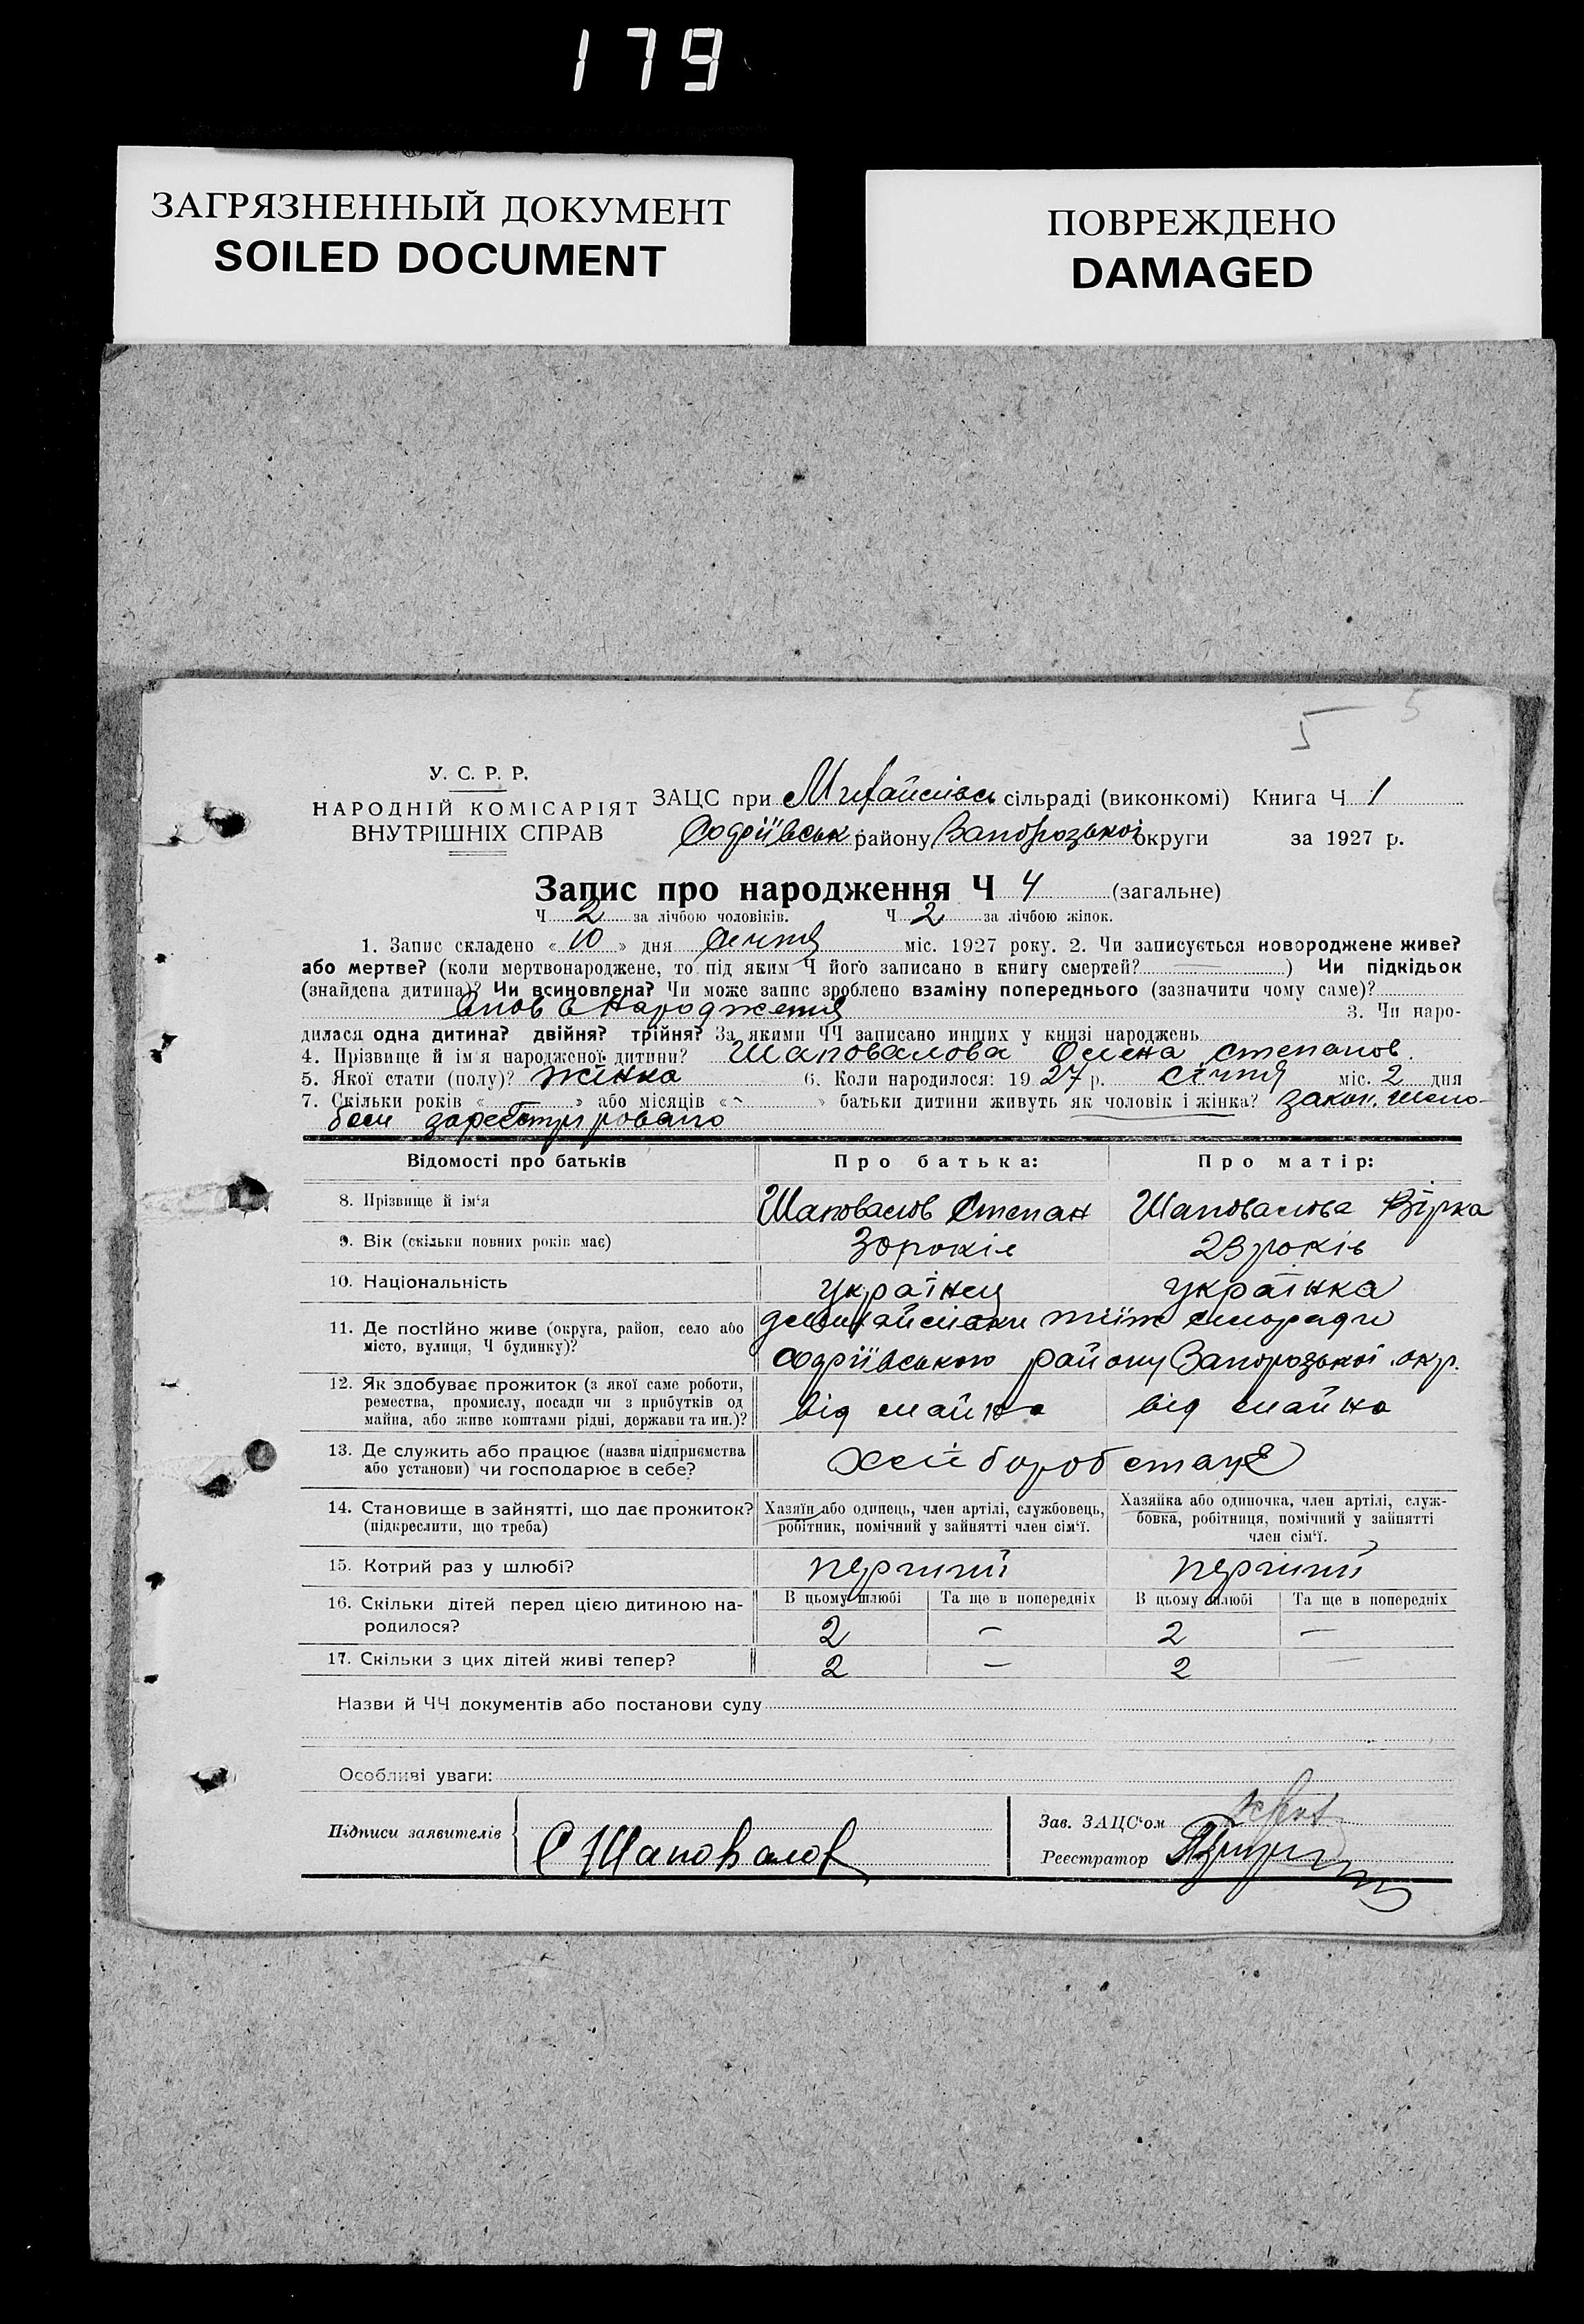 179
ЗАГРЯЗНЕННЫЙ ДОКУМЕНТ
SOILED DOCUMENT
ПОВРЕЖДЕНО
DAMAGED
5 5
У. С. Р. Р.
НАРОДНІЙ КОМІСАРІЯТ
ВНУТРІШНІХ СПРАВ
ЗАЦС при сільраді (виконкомі) Книга Ч 1
району Запорозької округи за 1927 р.
Запис про народження Ч 4 (загальне)
Ч 2 за лічбою чоловіків. Ч 2 за лічбою жінок.
1. Запис складено « 10 » дня Січня міс. 1927 року. 2. Чи записується новороджене живе?
або мертве? (коли мертвонароджене, то під яким Ч його записано в книгу смертей? — ) Чи підкідьок
(знайдена дитина)? Чи всиновлена? Чи може запис зроблено взаміну попереднього (зазначити чому саме)?
народження 3. Чи наро-
дилася одна дитина? двійня? трійня? За якими ЧЧ записано инших у книзі народжень
4. Прізвище й ім'я народженої дитини? Шаповалова Олена степанов.
5. Якої стати (полу)? жінка 6. Коли народилося: 19 27 р. січня міс. 2 дня
7. Скільки років « — » або місяців « ~ » батьки дитини живуть як чоловік і жінка? закон.
Відомості про батьків Про батька: Про матір:
8. Прізвище й ім'я Шаповалов Степан Шаповалова Вірка
9. Вік (скільки повних років має) 30 років 23 років
10. Національність українец українка
11. Де постійно живе (округа, район, село або
місто, вулиця, Ч будинку)? району Запорозької окр.
12. Як здобуває прожиток (з якої саме роботи,
ремества, промислу, посади чи з прибутків од
майна, або живе коштами рідні, держави та ин.)? від майна від майна
13. Де служить або працює (назва підприємства
або установи) чи господарює в себе?
14. Становище в зайнятті, що дає прожиток?
(підкреслити, що треба)
Хазяїн або одинець, член артілі, службовець,
робітник, помічний у зайнятті член сім'ї.
Хазяйка або одиночка, член артілі, служ-
бовка, робітниця, помічний у зайнятті
член сім'ї.
15. Котрий раз у шлюбі? перший перший
16. Скільки дітей перед цією дитиною на-
родилося?
В цьому шлюбі Та ще в попередніх В цьому шлюбі Та ще в попередніх
2 — 2 —
17. Скільки з цих дітей живі тепер? 2 — 2 —
Назви й ЧЧ документів або постанови суду
Особливі уваги:
Підписи заявителів С Шаповалов
Зав. ЗАЦС'ом
Реєстратор